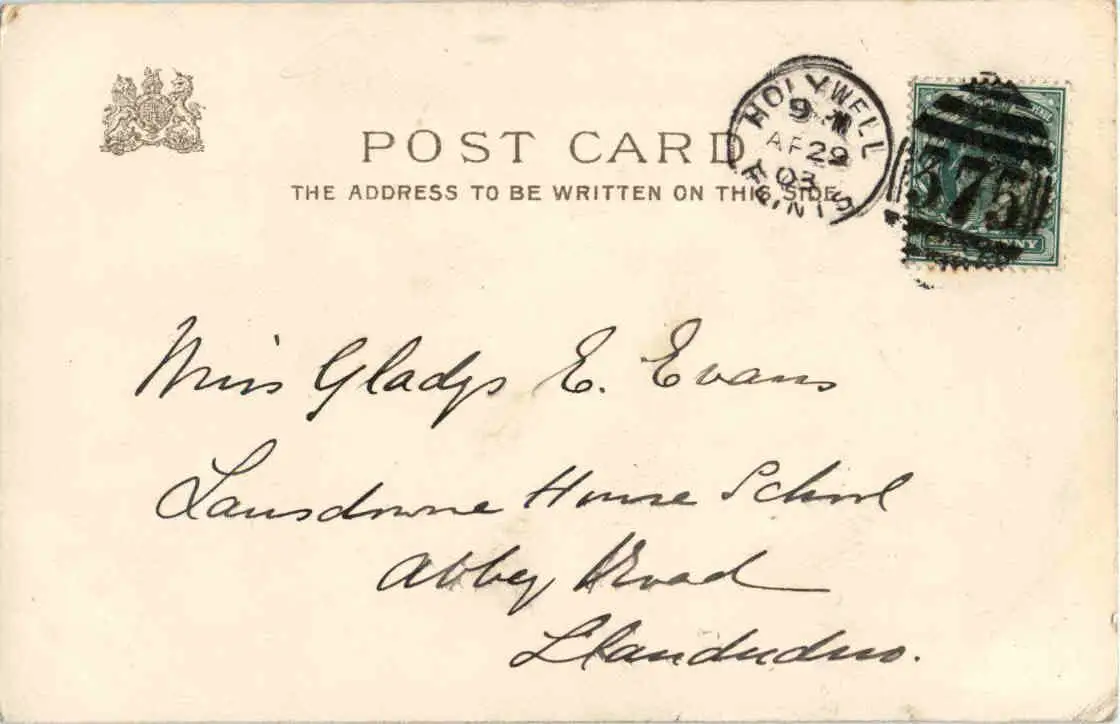 POST CARD
THE ADDRESS TO BE WRITTEN ON THIS SIDE
HOLYWELL
9
AP 29
03
FLINTS
375
PENNY
Miss Gladys E. Evans
Lansdowne House School
Abbey Road
Llandudno.